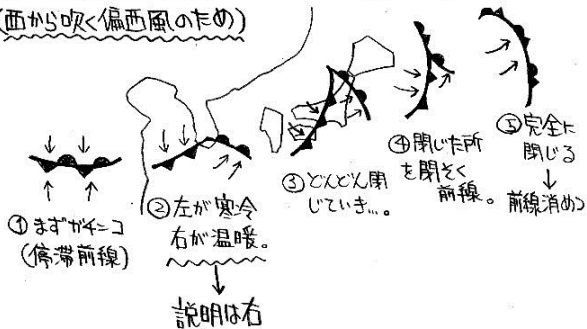 (西から吹く偏西風のため)
①まずガチンコ
(停滞前線)
②左が寒冷
右が温暖。
↓
説明は右
③どんどん閉
じていき...。
④閉じた所
を閉そく
前線。
⑤完全に
閉じる
↓
前線消めつ